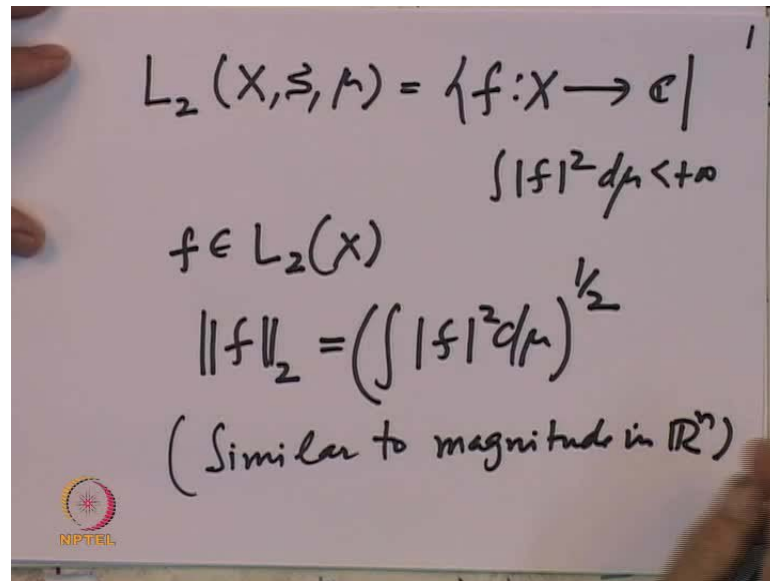 1
L₂ (X, S, μ) = {f : X ⟶ ℂ |
∫ |f|² dμ < +∞
f ∈ L₂(X)
‖f‖₂ = (∫ |f|² dμ)^{1/2}
(Similar to magnitude in ℝⁿ)
NPTEL